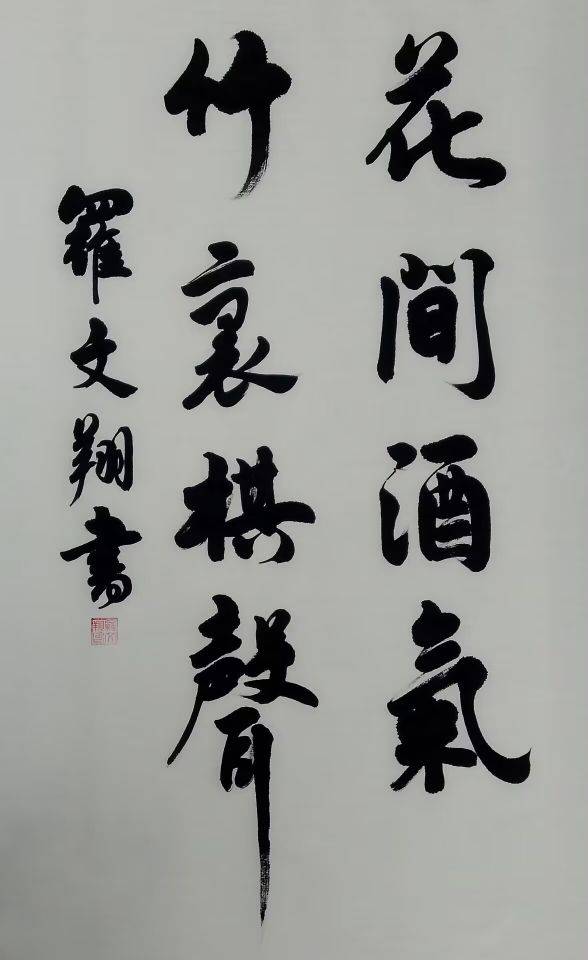 花間酒氣
竹裏棋聲
羅文翔書